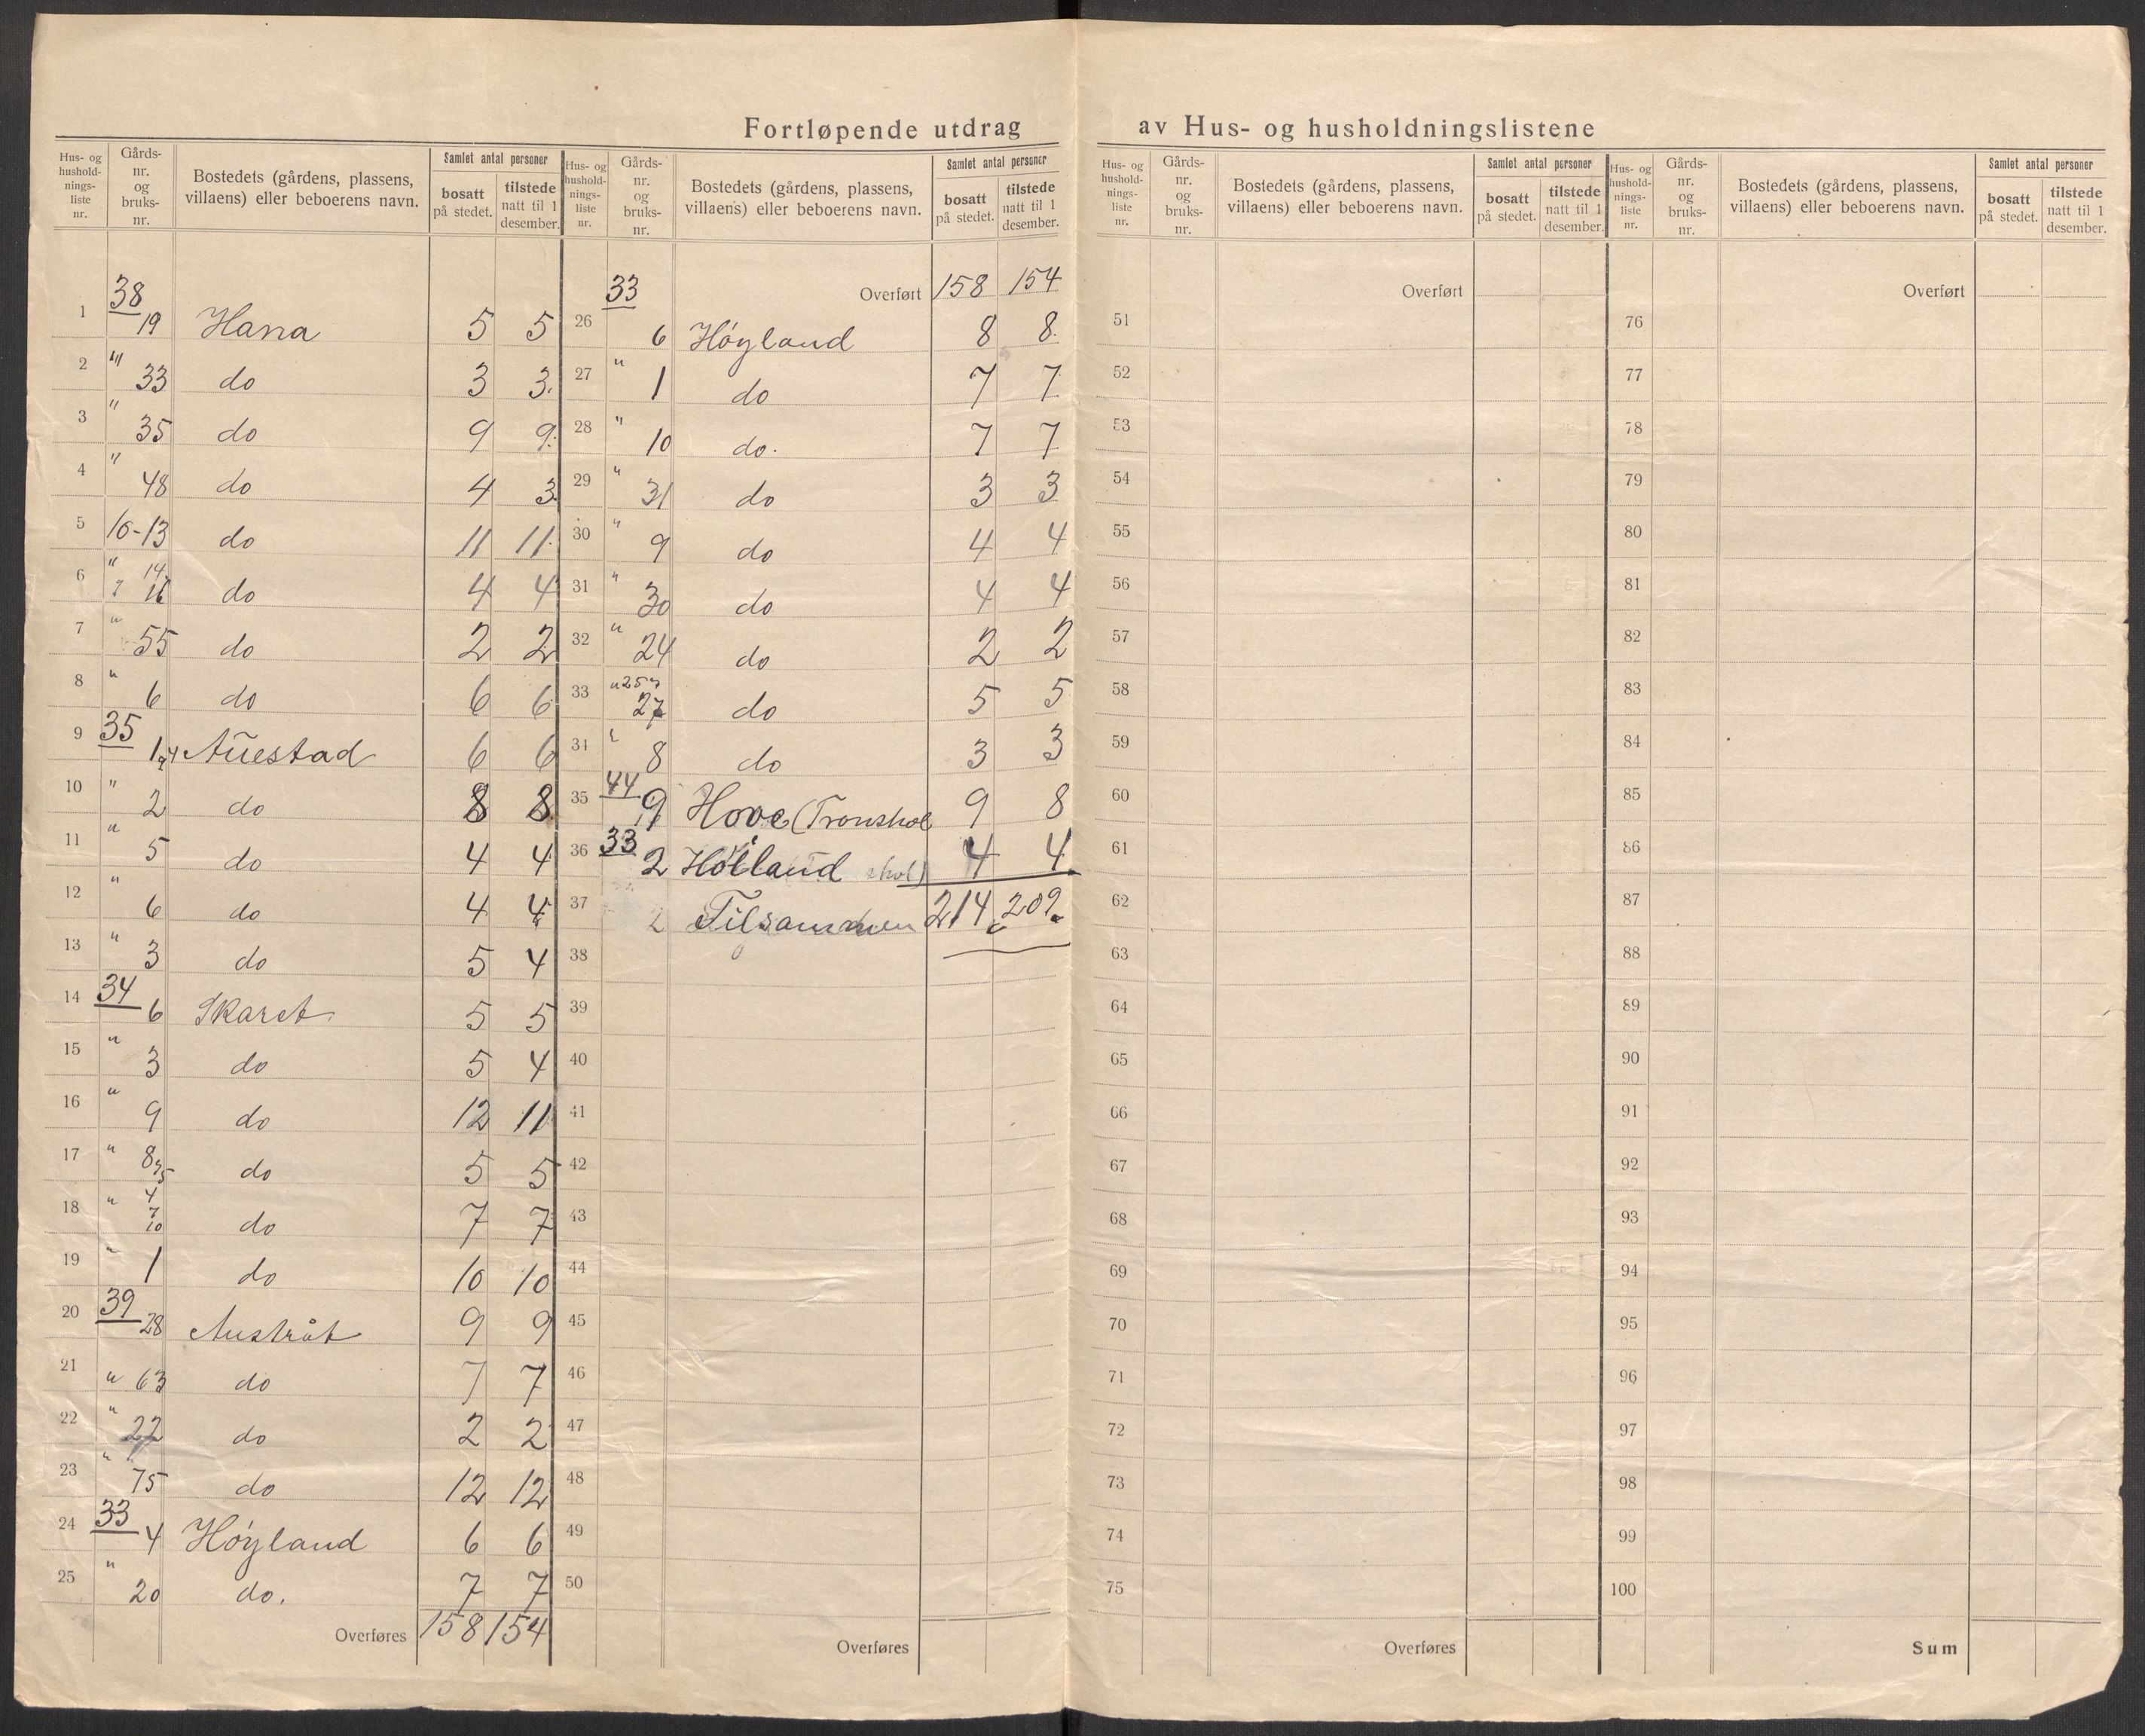 Fortløpende utdrag av Hus- og husholdningslistene
Hus- og husholdnings-liste nr. | Gårds-nr. og bruks-nr. | Bostedets (gårdens, plassens, villaens) eller beboerens navn. | Samlet antal personer | bosatt på stedet. | tilstede natt til 1 desember.
1 38 19 Hana 5 5
2 " 33 do 3 3.
3 " 35 do 9 9.
4 " 48 do 4 3
5 10-13 do 11 11.
6 " 14 16 do 4 4
7 " 55 do 2 2
8 " 6 do 6 6
9 35 1, 4 Auestad 6 6
10 " 2 do 8 8
11 " 5 do 4 4
12 " 6 do 4 4
13 " 3 do 5 4
14 34 6 Skaret 5 5
15 " 3 do 5 4
16 " 9 do 12 11
17 " 8, 5 do 5 5
18 " 4 7 10 do 7 7
19 " 1 do 10 10
20 39 28 Austråt 9 9
21 " 63 do 7 7
22 " 22 do 2 2
23 " 75 do 12 12
24 33 4 Høyland 6 6
25 " 20 do. 7 7
Overføres 158 154
Hus- og husholdnings-liste nr. | Gårds-nr. og bruks-nr. | Bostedets (gårdens, plassens, villaens) eller beboerens navn. | Samlet antal personer | bosatt på stedet. | tilstede natt til 1 desember.
Overført 158 154
26 33 6 Høyland 8 8.
27 " 1 do 7 7
28 " 10 do. 7 7
29 " 31 do 3 3
30 " 9 do 4 4
31 " 30 do 4 4
32 " 24 do 2 2
33 " 25 27 do 5 5
34 " 8 do 3 3
35 44 9 Hove (Tronshol 9 8
36 33 2 Holland 4 4
37 2 Tilsammen 214 209
38
39
40
41
42
43
44
45
46
47
48
49
50
Overføres
Hus- og husholdnings-liste nr. | Gårds-nr. og bruks-nr. | Bostedets (gårdens, plassens, villaens) eller beboerens navn. | Samlet antal personer | bosatt på stedet. | tilstede natt til 1 desember.
Overført
51
52
53
54
55
56
57
58
59
60
61
62
63
64
65
66
67
68
69
70
71
72
73
74
75
Overføres
Hus- og husholdnings-liste nr. | Gårds-nr. og bruks-nr. | Bostedets (gårdens, plassens, villaens) eller beboerens navn. | Samlet antal personer | bosatt på stedet. | tilstede natt til 1 desember.
Overført
76
77
78
79
80
81
82
83
84
85
86
87
88
89
90
91
92
93
94
95
96
97
98
99
100
Sum